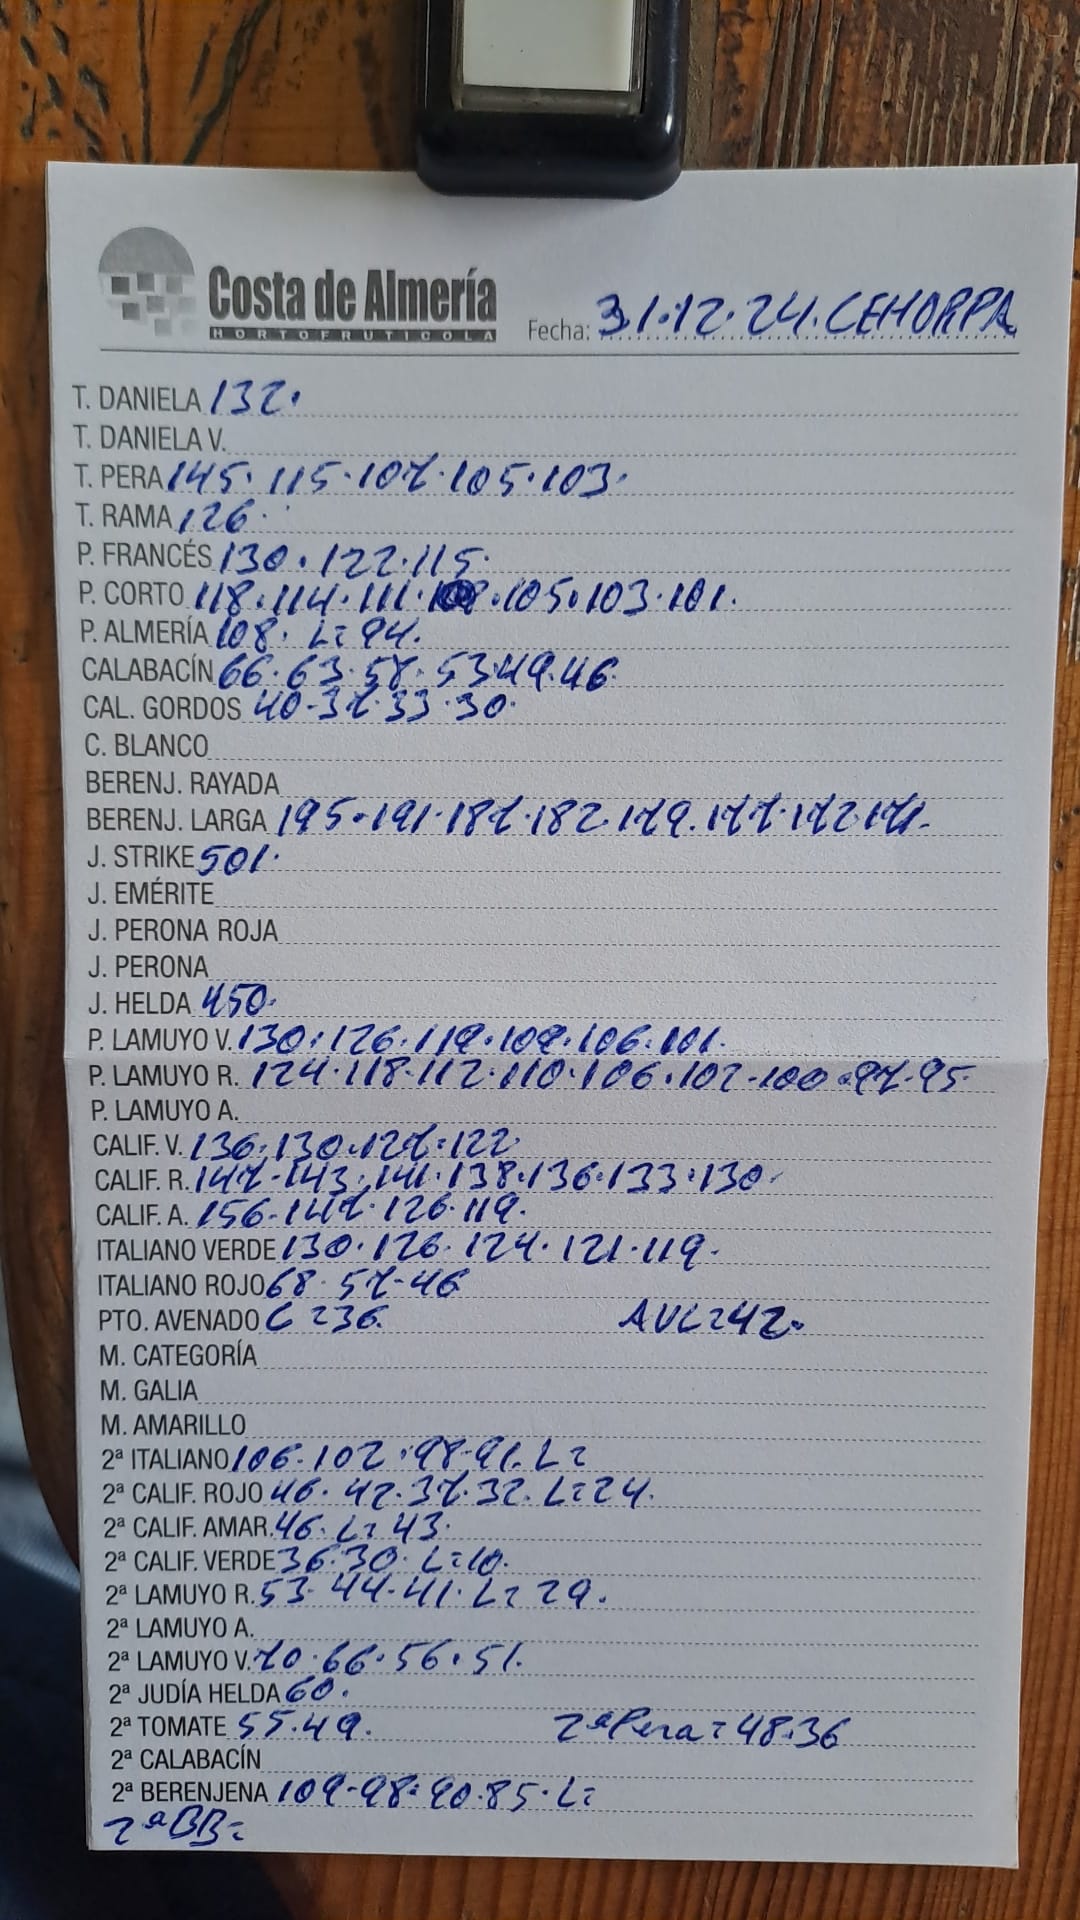 Costa de Almería
HORTOFRUTICOLA
Fecha: 31.12.24. CEHORPA
T. DANIELA 132.
T. DANIELA V.
T. PERA 145. 115. 107. 105. 103.
T. RAMA 126.
P. FRANCÉS 130. 122. 115.
P. CORTO 118. 114. 111. 108. 105. 103. 101.
P. ALMERÍA 108. L= 94.
CALABACÍN 66. 63. 57. 53. 49. 46.
CAL. GORDOS 40. 37. 33. 30.
C. BLANCO
BERENJ. RAYADA
BERENJ. LARGA 195. 191. 187. 182. 179. 177. 172. 171.
J. STRIKE 501.
J. EMÉRITE
J. PERONA ROJA
J. PERONA
J. HELDA 450.
P. LAMUYO V. 130. 126. 119. 109. 106. 101.
P. LAMUYO R. 124. 118. 112. 110. 106. 102. 100. 97. 95.
P. LAMUYO A.
CALIF. V. 136. 130. 127. 122
CALIF. R. 147. 143. 141. 138. 136. 133. 130.
CALIF. A. 156. 147. 126. 119.
ITALIANO VERDE 130. 126. 124. 121. 119.
ITALIANO ROJO 68. 57. 46
PTO. AVENADO C = 36. AVL = 42.
M. CATEGORÍA
M. GALIA
M. AMARILLO
2ª ITALIANO 106. 102. 98. 91. L =
2ª CALIF. ROJO 46. 42. 37. 32. L = 24.
2ª CALIF. AMAR. 46. L = 43.
2ª CALIF. VERDE 36. 30. L = 10.
2ª LAMUYO R. 53. 44. 41. L = 29.
2ª LAMUYO A.
2ª LAMUYO V. 70. 66. 56. 51.
2ª JUDÍA HELDA 60.
2ª TOMATE 55. 49. 2ª Pera = 48. 36
2ª CALABACÍN
2ª BERENJENA 109. 98. 90. 85. L =
2ª BB =